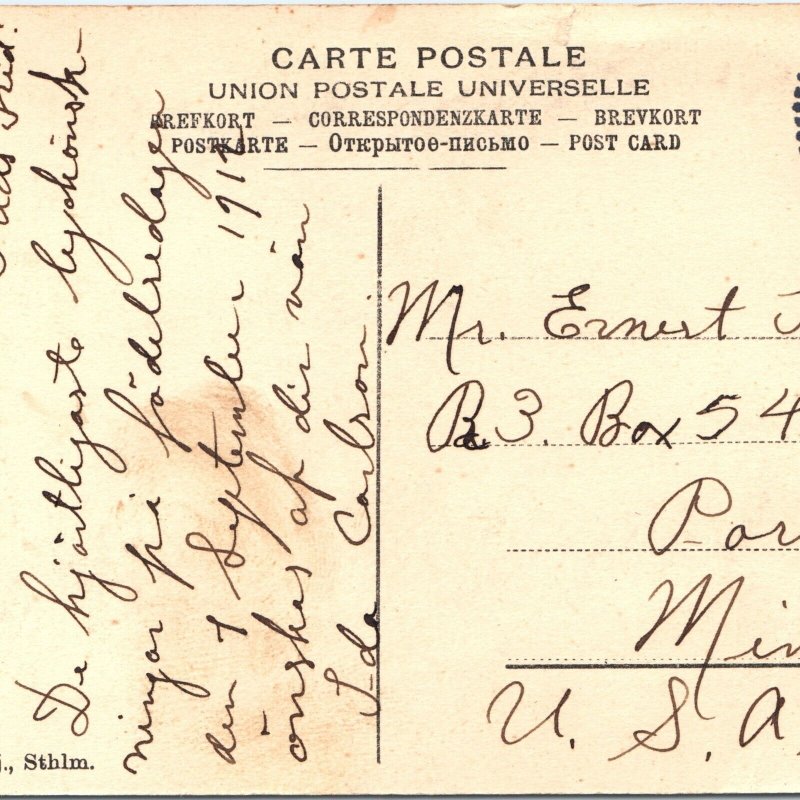 CARTE POSTALE
UNION POSTALE UNIVERSELLE
BREFKORT — CORRESPONDENZKARTE — BREVKORT
POSTKARTE — Открытое-письмо — POST CARD
De hjärtligaste lyckönsk-
ningar på födelsedagen
den 7 September 1912
önskas af din vän
Ida Carlson
Mr. Ernest
R. 3. Box 54
Por
Min
U. S. A.
j., Sthlm.